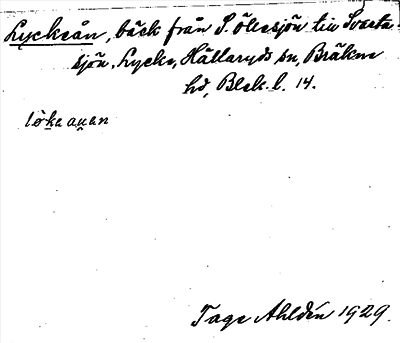 Lyckeån, bäck från S. Öllesjön till Svarta-
sjön, Lycke, Hällaryds sn, Bräkne
hd, Blek. l. 14.
lø̀ka au̯an
Tage Ahldén 1929.